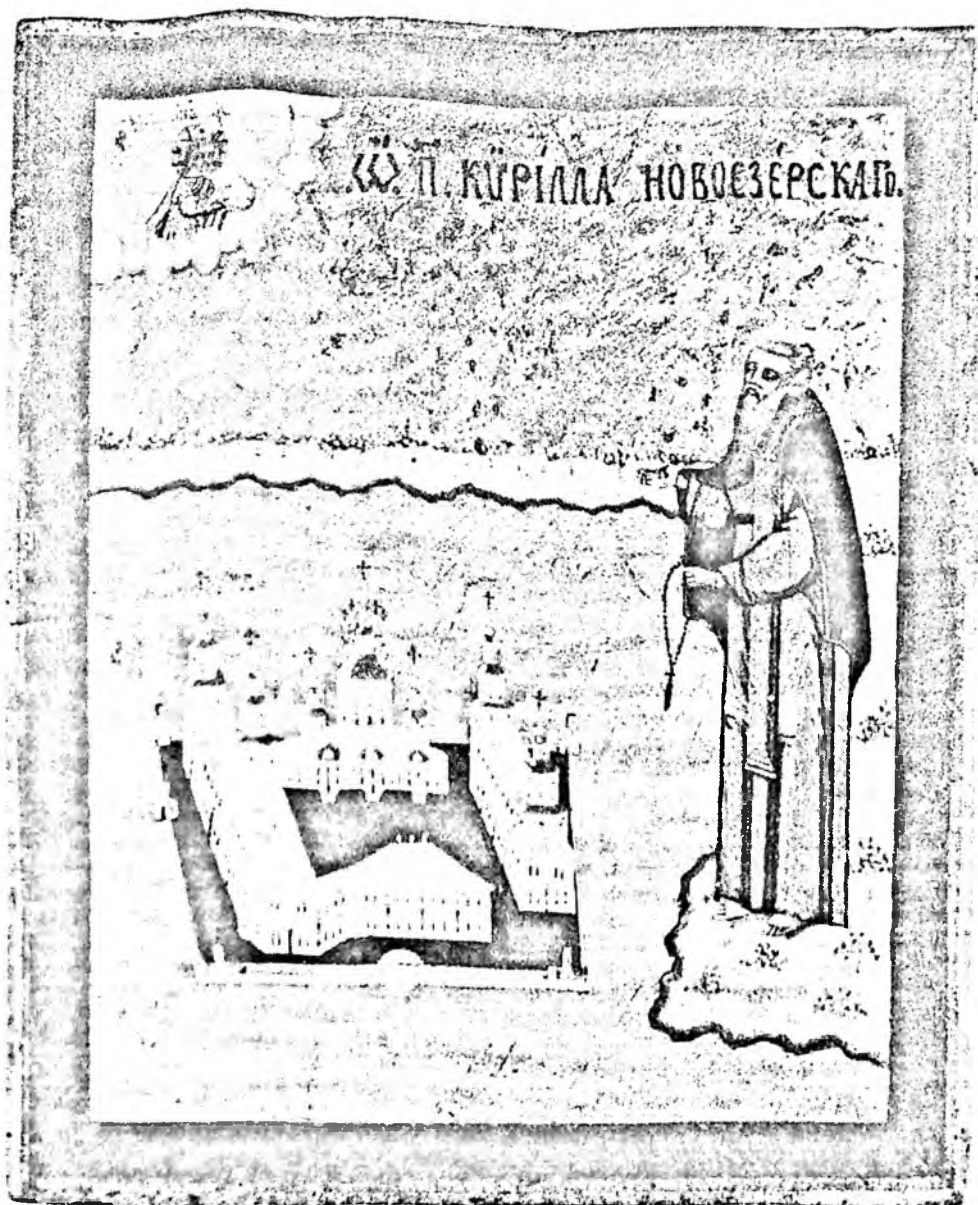 .Ѽ. П. КѶРІ́ЛЛА НОВОЄЗЕ́РСКАГѠ.